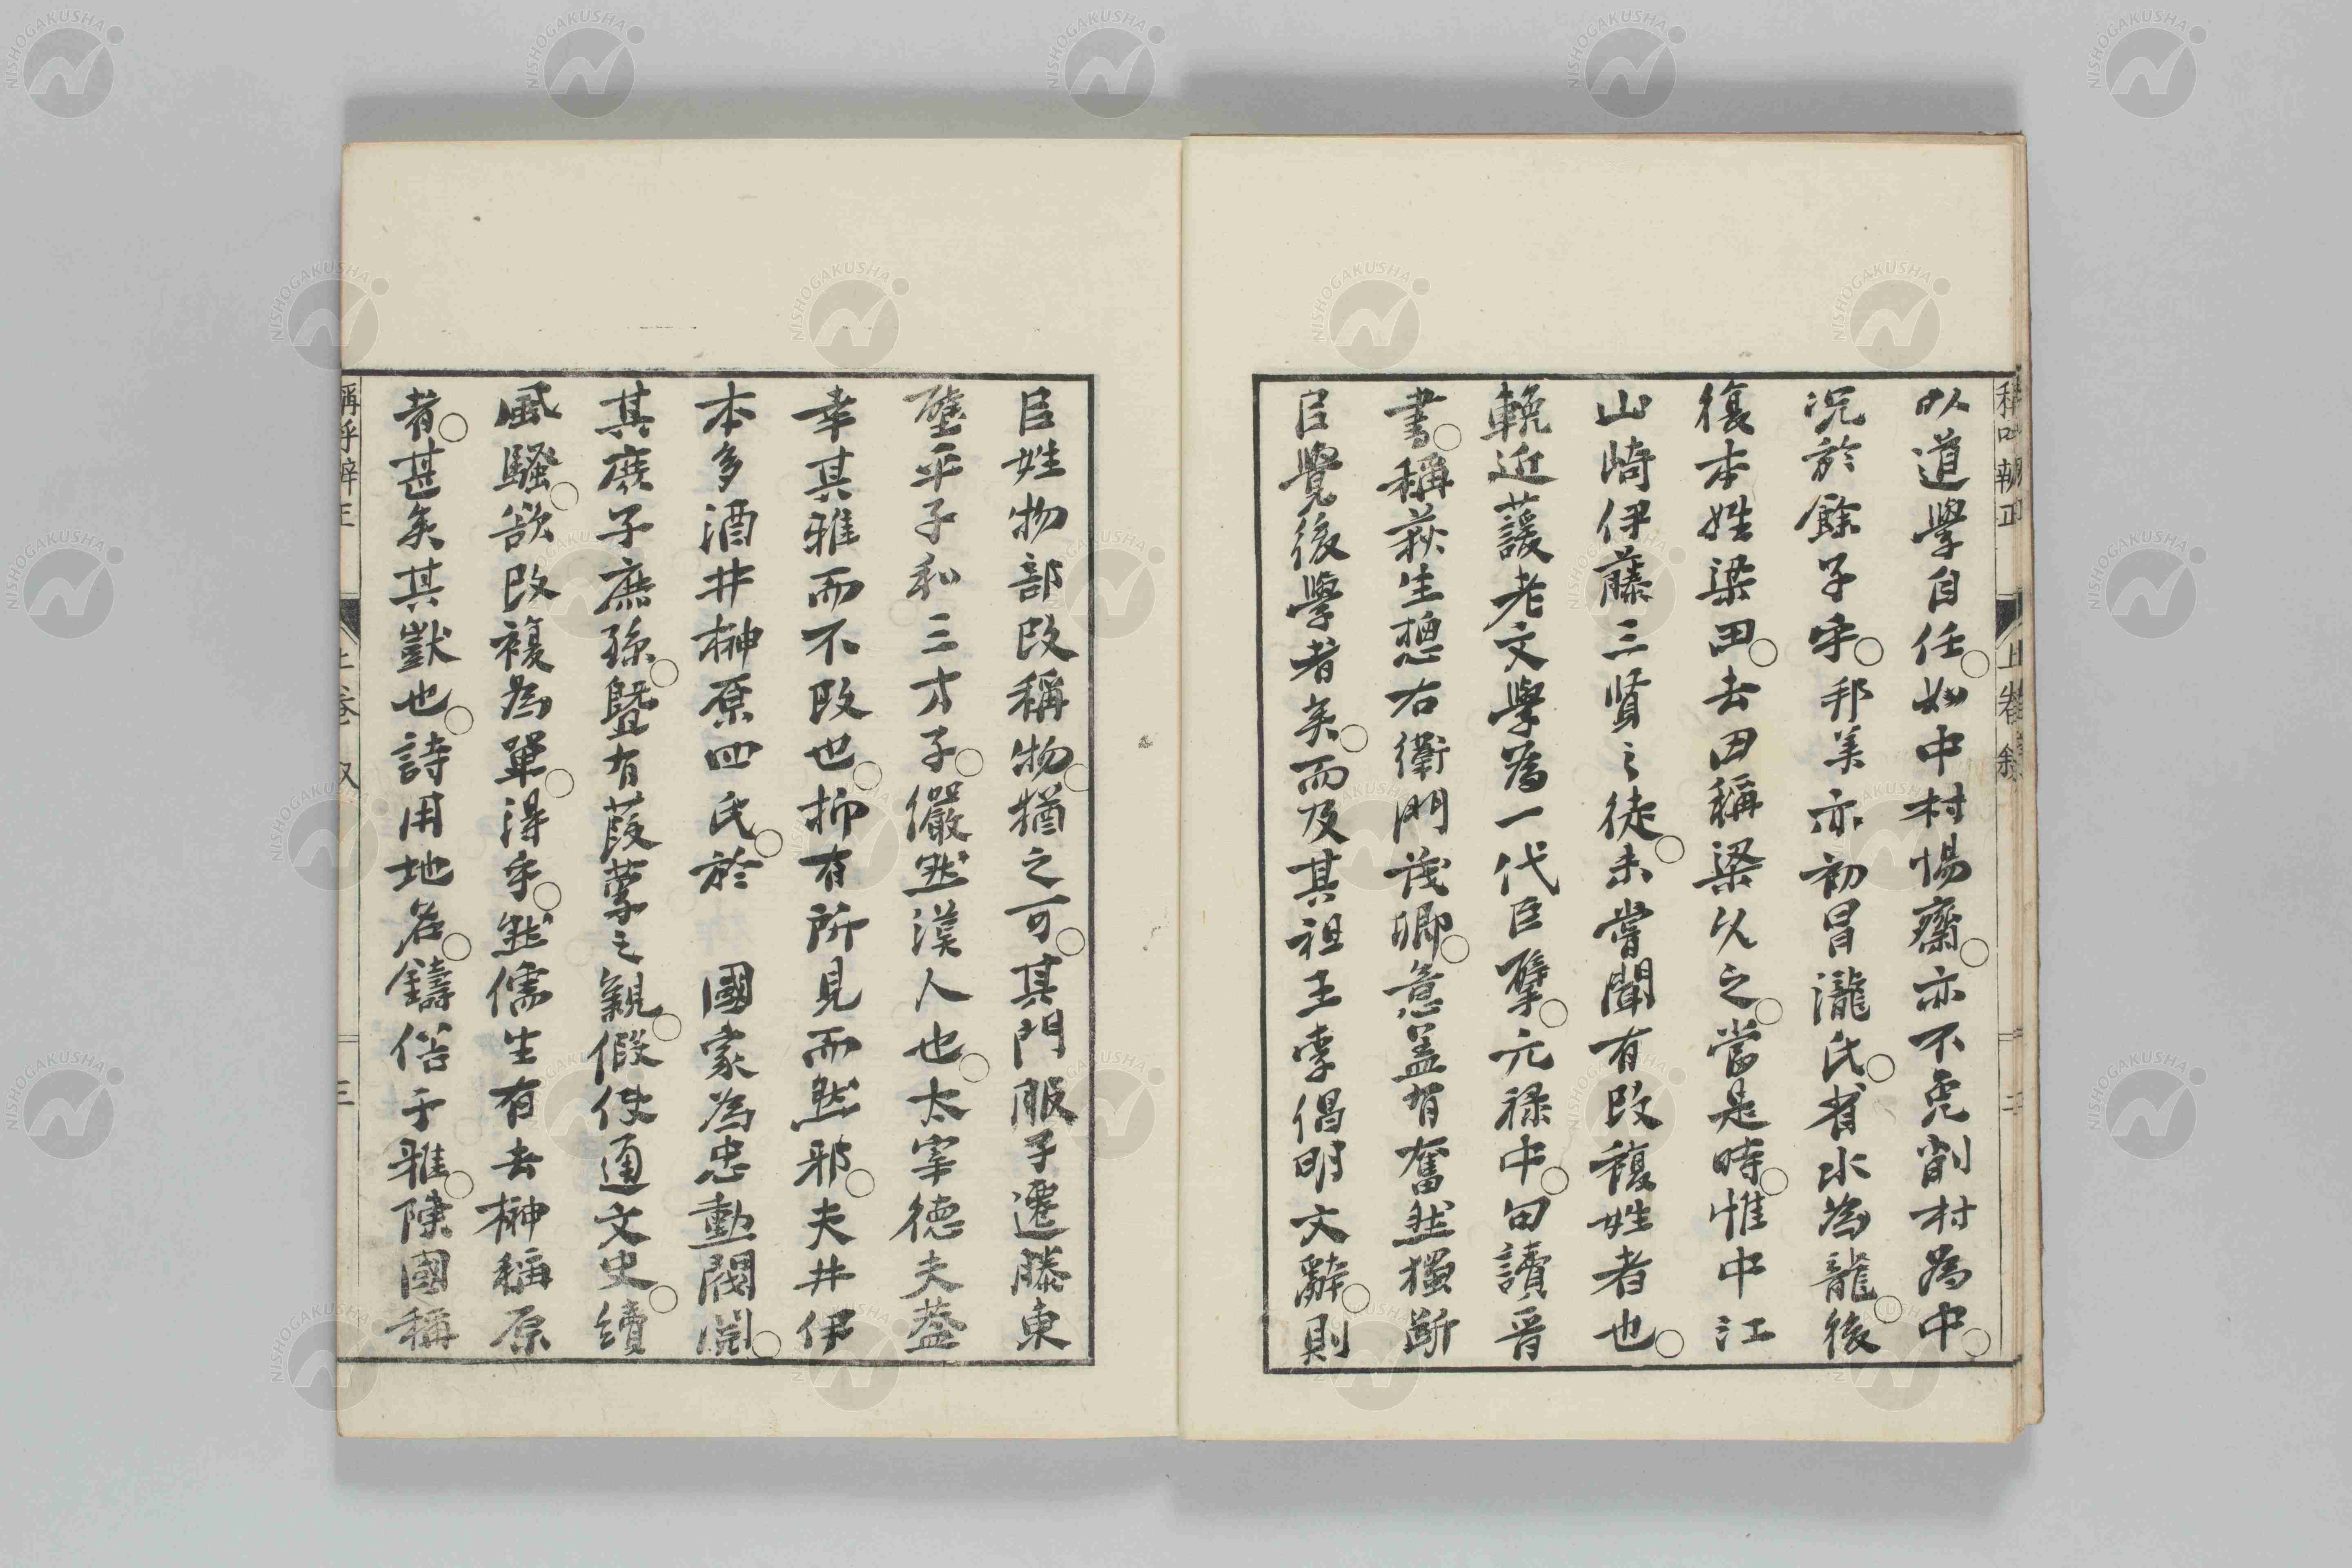 以道學自任。如中村惕齋。亦不免削村為中。
況於餘子乎。邦美亦初冒瀧氏。省水為龍。後
復本姓梁田。去田稱梁以之。當是時。惟中江
山崎伊藤三賢之徒。未嘗聞有改複姓者也。
輓近蘐老文學為一代巨擘。元祿中。句讀晉
書。稱荻生揔右衛門茂卿。意蓋有奮然獨斷
巨覺後學者矣。而及其祖王李倡明文辭。則
臣姓物部改稱物。猶之可。其門服子遷滕東
壁平子和三才子。儼然漢人也。太宰德夫蓋
幸其雅而不改也。抑有所見而然邪。夫井伊
本多酒井榊原四氏。於 國家為忠勳閥閱。
其庶子庶孫。曁有葭莩之親。假使通文史。續
風騷。欲改複為單。得乎。然儒生有去榊稱原
者。甚矣其獃也。詩用地名。鑄俗于雅。陳國稱
稱呼辨正
上卷 叙
三
NISHOGAKUSHA